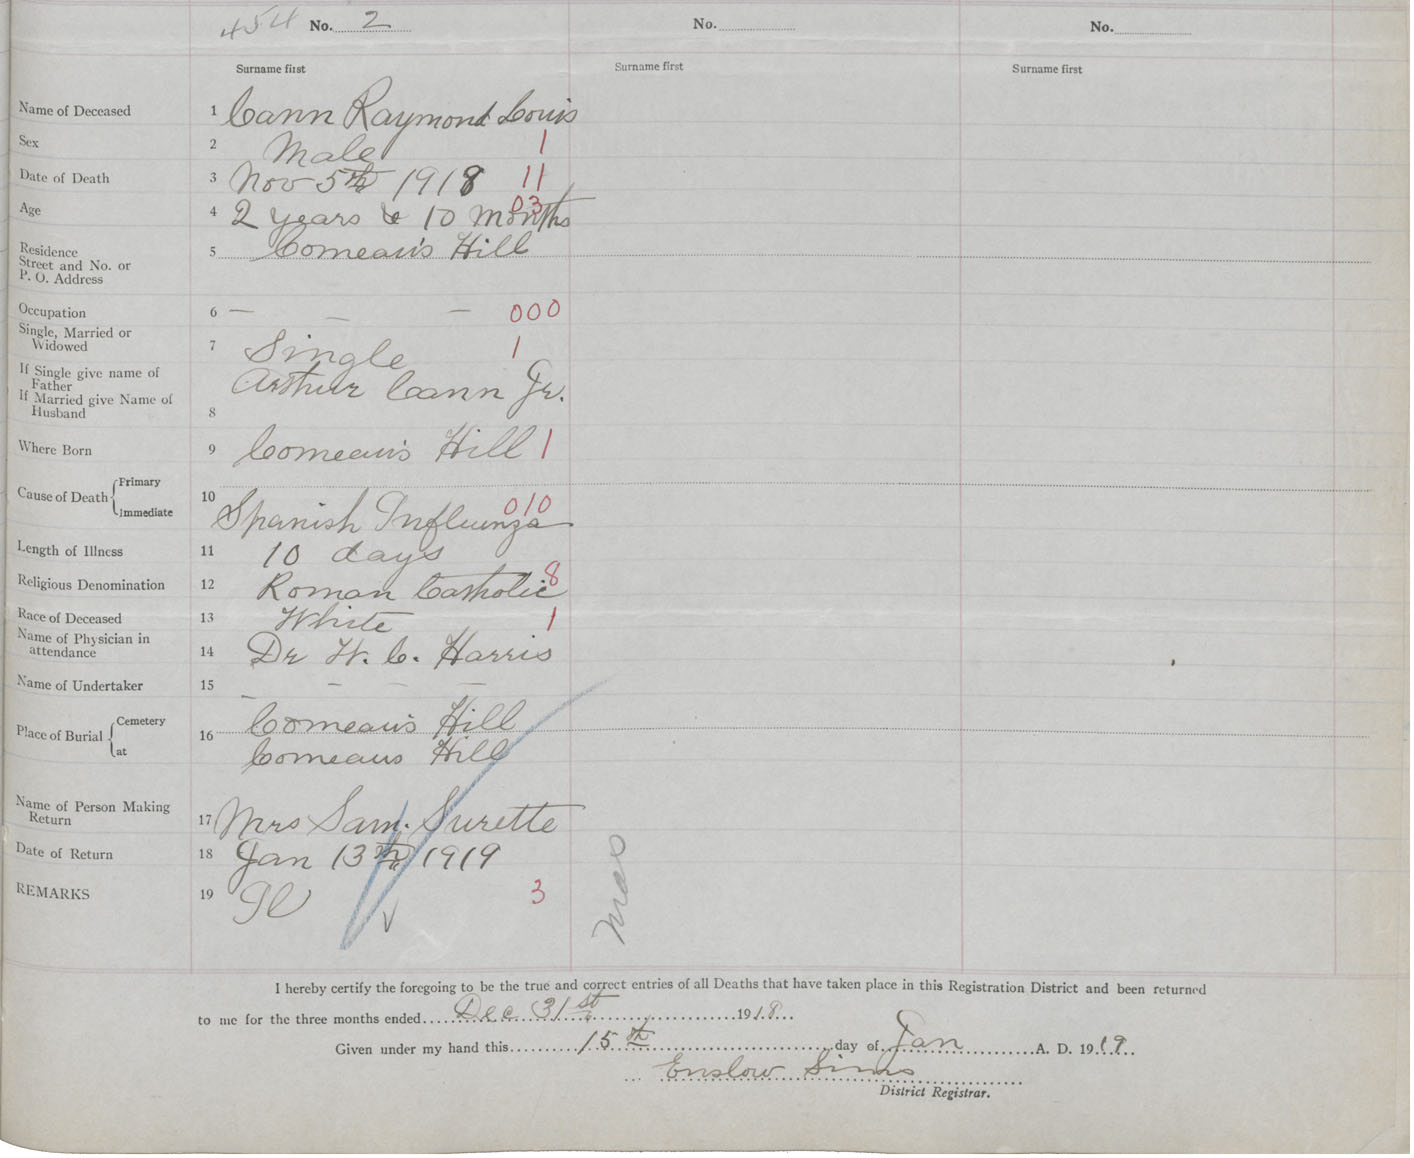 454 No. 2 No. No.
Surname first Surname first Surname first
Name of Deceased 1 Cann Raymond Louis
Sex 2 Male 1
Date of Death 3 Nov 5th 1918 11
Age 4 2 years & 10 months 03
Residence
Street and No. or
P. O. Address 5 Comeau's Hill
Occupation 6 — — — 000
Single, Married or
Widowed 7 Single 1
If Single give name of
Father
If Married give Name of
Husband 8 Arthur Cann Jr.
Where Born 9 Comeau's Hill 1
Cause of Death { Primary
Immediate 10 Spanish Influenza 010
Length of Illness 11 10 days
Religious Denomination 12 Roman Catholic 8
Race of Deceased 13 White 1
Name of Physician in
attendance 14 Dr W. C. Harris
Name of Undertaker 15 — — — —
Place of Burial { Cemetery 16 Comeau's Hill
at Comeaus Hill
Name of Person Making
Return 17 Mrs Sam. Surette
Date of Return 18 Jan 13th 1919
REMARKS 19 3
I hereby certify the foregoing to be the true and correct entries of all Deaths that have taken place in this Registration District and been returned
to me for the three months ended Dec 31st 1918
Given under my hand this 15th day of Jan A. D. 1919
Enslow Sims
District Registrar.